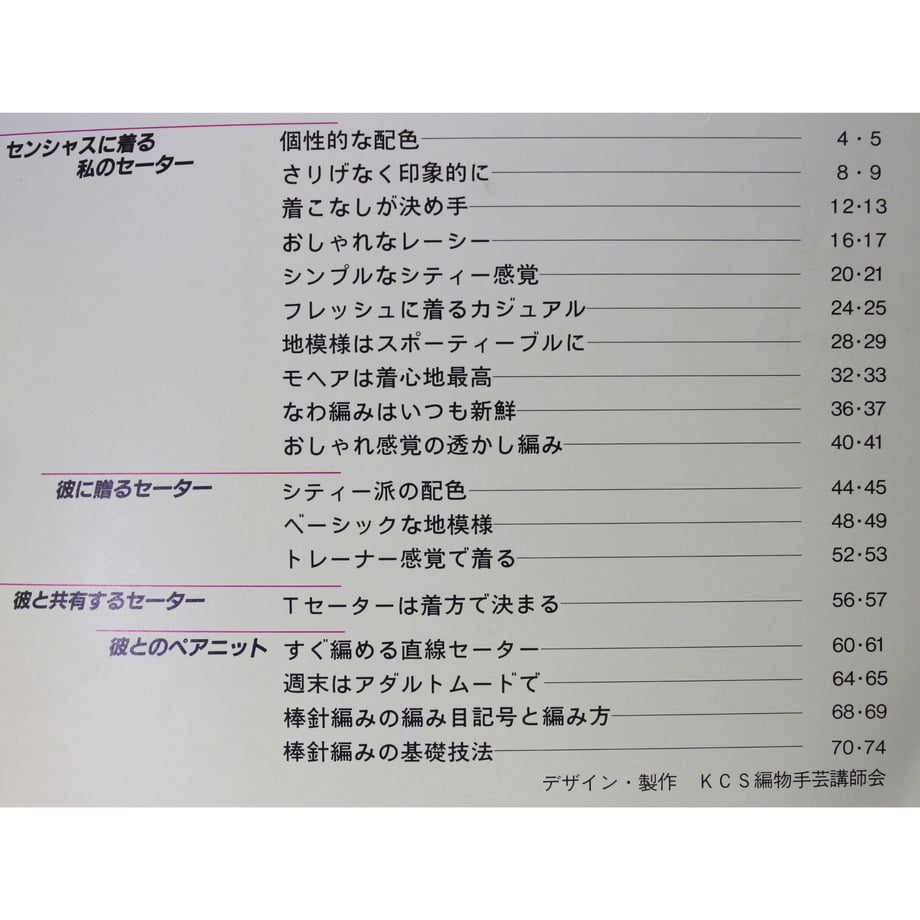 センシャスに着る
私のセーター
個性的な配色 4・5
さりげなく印象的に 8・9
着こなしが決め手 12・13
おしゃれなレーシー 16・17
シンプルなシティー感覚 20・21
フレッシュに着るカジュアル 24・25
地模様はスポーティーブルに 28・29
モヘアは着心地最高 32・33
なわ編みはいつも新鮮 36・37
おしゃれ感覚の透かし編み 40・41
彼に贈るセーター
シティー派の配色 44・45
ベーシックな地模様 48・49
トレーナー感覚で着る 52・53
彼と共有するセーター
Tセーターは着方で決まる 56・57
彼とのペアニット
すぐ編める直線セーター 60・61
週末はアダルトムードで 64・65
棒針編みの編み目記号と編み方 68・69
棒針編みの基礎技法 70・74
デザイン・製作 KCS編物手芸講師会